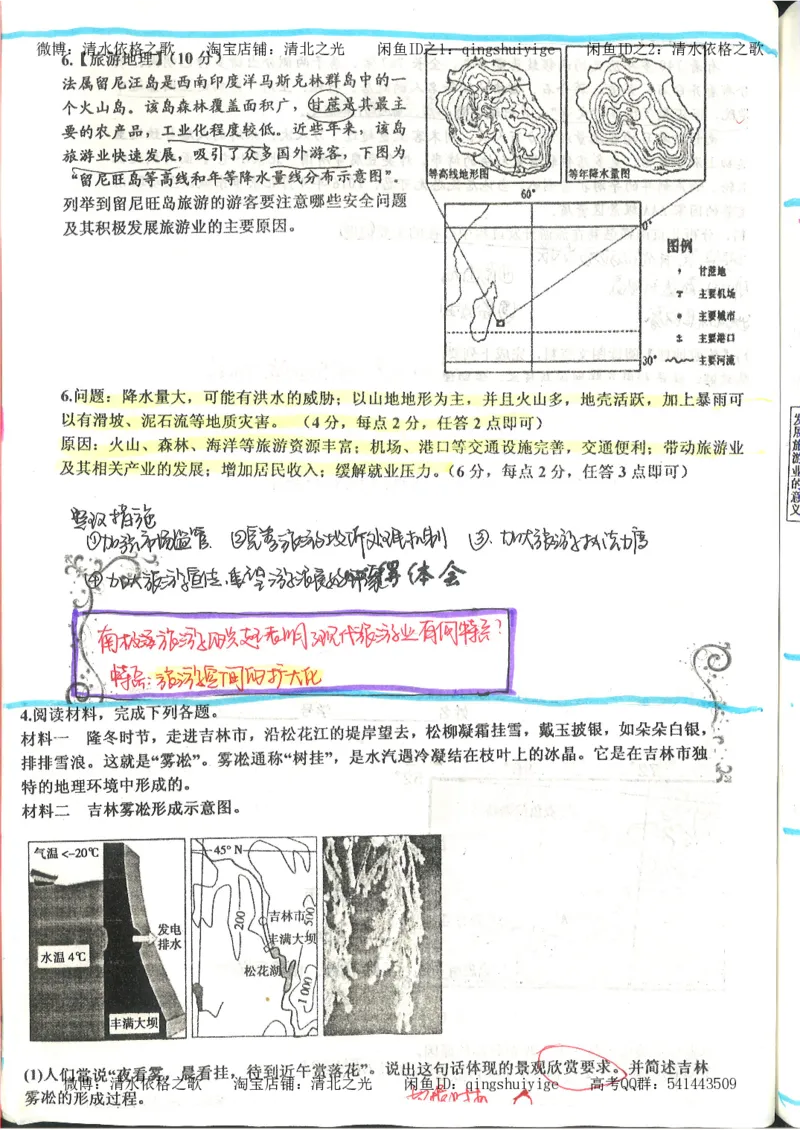 微博：清水依格之歌 淘宝店铺：清北之光 闲鱼ID之1：qingshuiyige 闲鱼ID之2：清水依格之歌
6.【旅游地理】（10 分）
法属留尼汪岛是西南印度洋马斯克林群岛中的一
个火山岛。该岛森林覆盖面积广，甘蔗是其最主
要的农产品，工业化程度较低。近些年来，该岛
旅游业快速发展，吸引了众多国外游客，下图为
“留尼旺岛等高线和年等降水量线分布示意图”。
列举到留尼旺岛旅游的游客要注意哪些安全问题
及其积极发展旅游业的主要原因。
等高线地形图
等年降水量图
60°
0°
30°
图例
甘蔗地
主要机场
主要城市
主要港口
主要河流
6.问题：降水量大，可能有洪水的威胁；以山地地形为主，并且火山多，地壳活跃，加上暴雨可
以有滑坡、泥石流等地质灾害。（4 分，每点 2 分，任答 2 点即可）
原因：火山、森林、海洋等旅游资源丰富；机场、港口等交通设施完善，交通便利；带动旅游业
及其相关产业的发展；增加居民收入；缓解就业压力。（6 分，每点 2 分，任答 3 点即可）
发展旅游业的意义
措施
①加强市场监管 ②完善旅游 机制 ③.加大旅游执法力度
④加大旅游宣传, 体会
南极游旅游的兴起表明了现代旅游业有何特点?
特点:旅游空间的扩大化
4.阅读材料，完成下列各题。
材料一 隆冬时节，走进吉林市，沿松花江的堤岸望去，松柳凝霜挂雪，戴玉披银，如朵朵白银，
排排雪浪。这就是“雾凇”。雾凇通称“树挂”，是水汽遇冷凝结在枝叶上的冰晶。它是在吉林市独
特的地理环境中形成的。
材料二 吉林雾凇形成示意图。
气温 <-20℃
水温 4℃
发电
排水
丰满大坝
45° N
200
吉林市
500
丰满大坝
松花湖
1 000
(1)人们常说“夜看雾，晨看挂，待到近午赏落花”。说出这句话体现的景观欣赏要求。并简述吉林
微博：清水依格之歌 淘宝店铺：清北之光 闲鱼ID：qingshuiyige 高考QQ群：541443509
雾凇的形成过程。